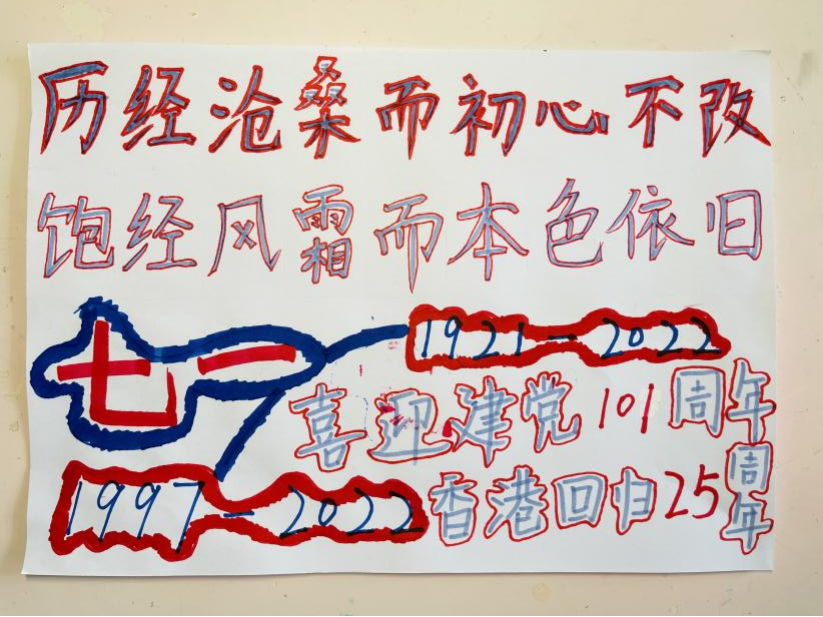 历经沧桑而初心不改
饱经风霜而本色依旧
七一
1921-2022
喜迎建党101周年
1997-2022
香港回归25周年